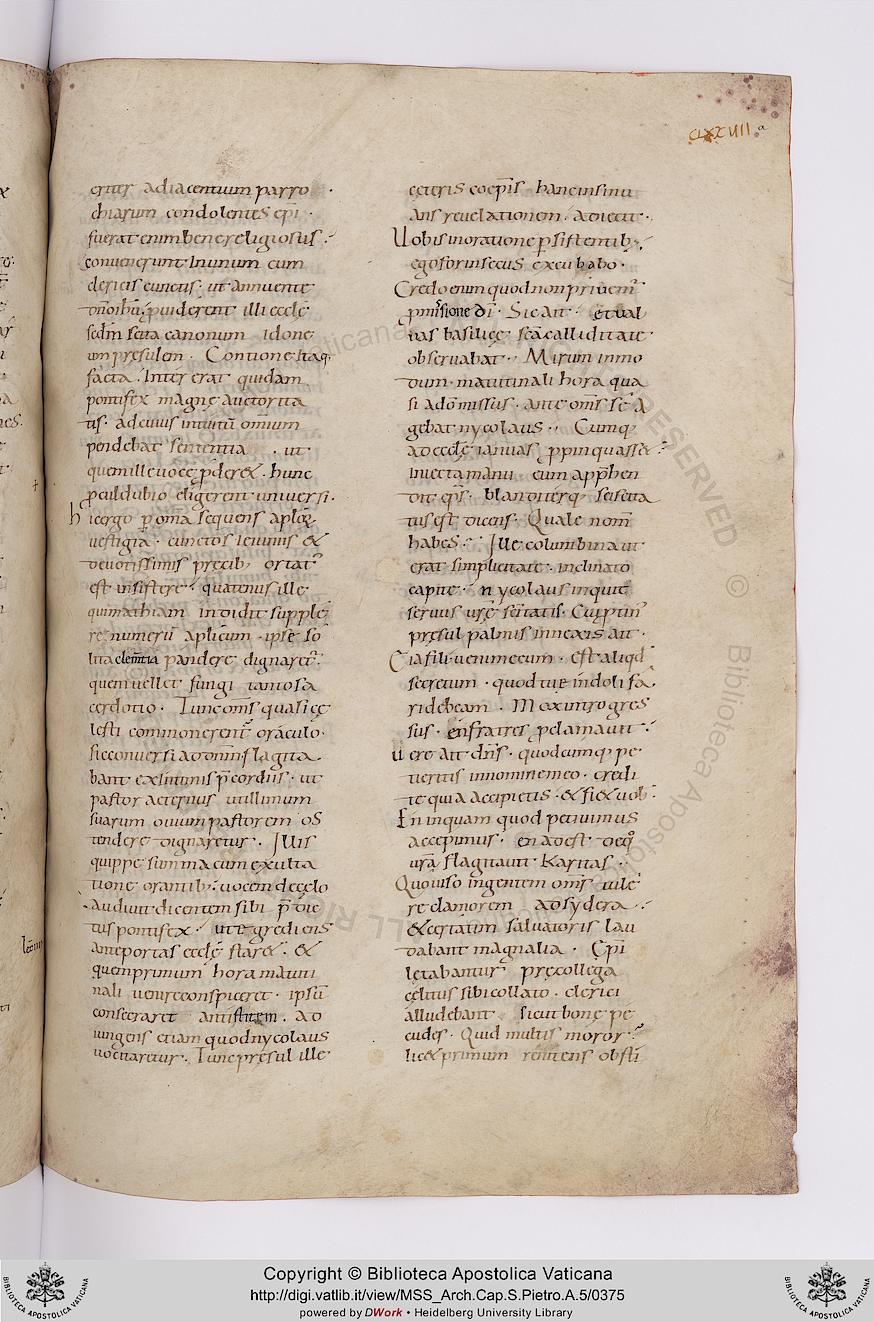 CLXXVIII a
eriter adiacentium parro
chiarum condolentes epi
fuerat enim bene religiosus
convenerunt in unum cum
clericis cunctis ut annuente
omibus puiderent illi eccle
sedm scita canonum idone
um presulem. Contione itaq
facta. Inter erat quidam
pontifex magne auctorita
tis. ad cuius intuitu omium
pendebat sententia . ut
quem ille voce pderet. hunc
pculdubio eligerent universi.
hic ergo p oma sequens aplor
vestigia. cunctos ieiuniis &
devotissimis precib; ortat
est insistere. quatenus ille
qui mathiam indidit supple
re numeru aplicum. ipse so
lita clemtia pandere dignaret.
quem vellet fungi tanto sa
cerdotio. Tunc oms quasi ce
lesti commonerent oraculo.
sic conversi ad omm flagita
bant ex intimis pcordiis. ut
pastor aeternus utillimum
suarum ovium pastorem os
tendere dignaretur. Illis
quippe summa cum exulta
tione orantib; vocem de celo
audivit dicentem sibi p dic
tus pontifex. ut egrediens
ante portas eccle staret. &
quem primum hora matuti
nali venire conspiceret. ipsu
consecraret antistitem. ad
iungens etiam quod nycolaus
vocitaretur. Tunc presul ille
ceteris coepis hanc insinu
ans revelationem. adiecit.
Uobis in oratione psistentib;
ego forinsecus excubabo.
Credo enim quod non privem
pmissione di. Sic ait. et val
vas basilice sca calliditate
observabat. Mirum in mo
dum. matutinali hora qua
si a do missus. ante oms se a
gebat nycolaus. Cumq
ad eccle ianuas ppinquasset
iniecta manu. cum apphen
dit eps. blanditerq sciscita
tus est dicens. Quale nom
habes. Ille columbina ut
erat simplicitate. inclinato
capite. nycolaus inquit
servus vre scitatis. Cui ptin
presul palmis innexis ait.
Eia fili veni mecum. est aliqd
secretum. quod tue indoli fa
ri debeam. Mox introgres
sus. en fratres pclamavit.
Vere ait dns. quodcumq pe
tieritis in nomine meo. credi
te quia accipietis. & fiet vob.
En inquam quod petivimus
accepimus. en adest oeq
vra flagitavit karitas.
Quo viso ingentem oms tule
re clamorem ad sydera.
& certatim salvatoris lau
dabant magnalia. Epi
letabantur pre collega
celitus sibi collato. clerici
alludebant sicut bone pe
cudes. Quid multis moror.
licet primum renitens obsti
Copyright © Biblioteca Apostolica Vaticana
http://digi.vatlib.it/view/MSS_Arch.Cap.S.Pietro.A.5/0375
powered by DWork • Heidelberg University Library